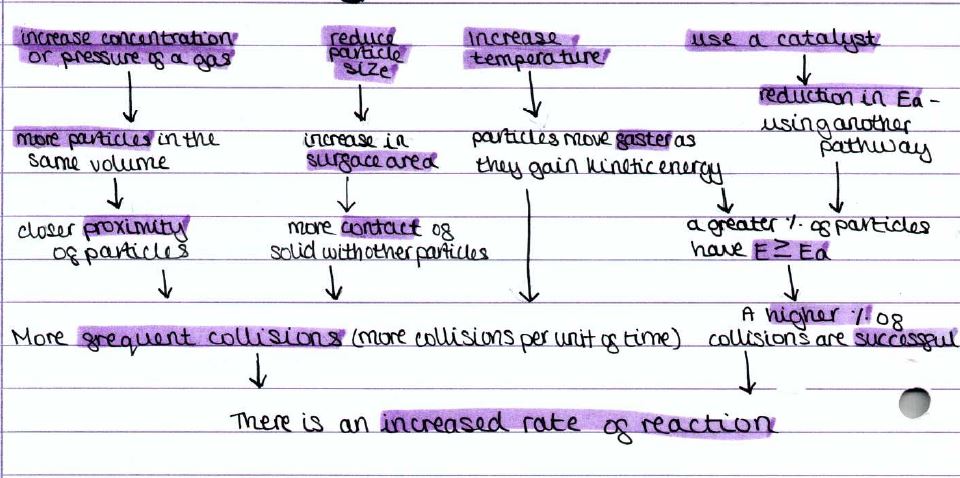 increase concentration
or pressure of a gas
more particles in the
same volume
closer proximity
of particles
reduce
particle
size
increase in
surface area
more contact of
solid with other particles
Increase
temperature
particles move faster as
they gain kinetic energy
use a catalyst
reduction in Ea -
using another
pathway
a greater % of particles
have E ≥ Ea
More frequent collisions (more collisions per unit of time)
A higher % of
collisions are successful
There is an increased rate of reaction